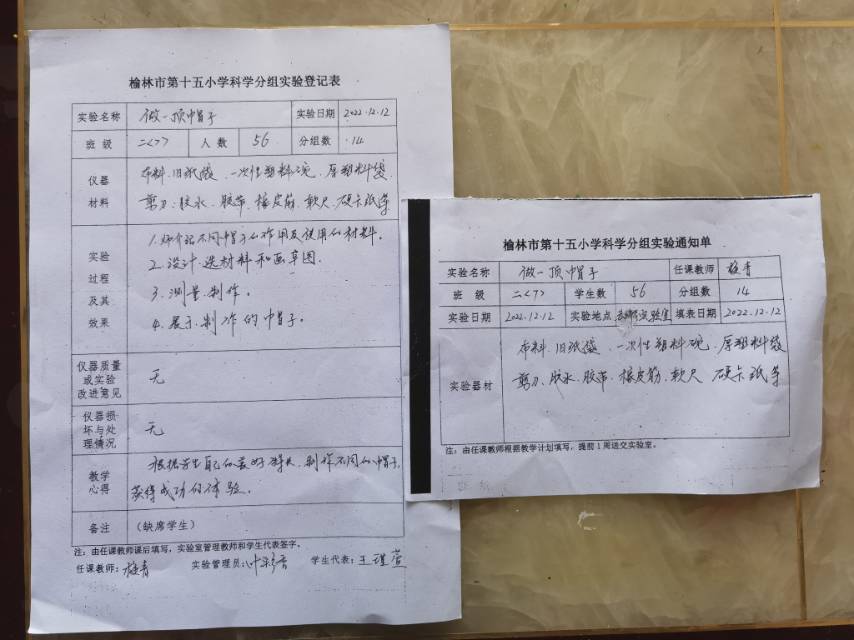 榆林市第十五小学科学分组实验登记表
实验名称 做一顶帽子 实验日期 2022.12.12
班 级 二<7> 人 数 56 分组数 14
仪器材料
布料、旧纸袋、一次性塑料碗、厚塑料袋
剪刀、胶水、胶带、橡皮筋、软尺、硬卡纸等
实验过程及其效果
1.师介绍不同帽子的作用及使用的材料。
2.设计、选材料和画草图。
3.测量、制作。
4.展示制作的帽子。
仪器质量或实验改进意见 无
仪器损坏与处理情况 无
教学心得
根据学生自己的爱好特长,制作不同的帽子,
获得成功的体验。
备注 (缺席学生)
注:由任课教师课后填写,实验室管理教师和学生代表签字。
任课教师: 青 实验管理员: 叶 学生代表:王
榆林市第十五小学科学分组实验通知单
实验名称 做一顶帽子 任课教师 青
班 级 二<7> 学生数 56 分组数 14
实验日期 2022.12.12 实验地点 实验室 填表日期 2022.12.12
实验器材
布料、旧纸袋、一次性塑料碗、厚塑料袋
剪刀、胶水、胶带、橡皮筋、软尺、硬卡纸等
注:由任课教师根据教学计划填写,提前1周送交实验室。